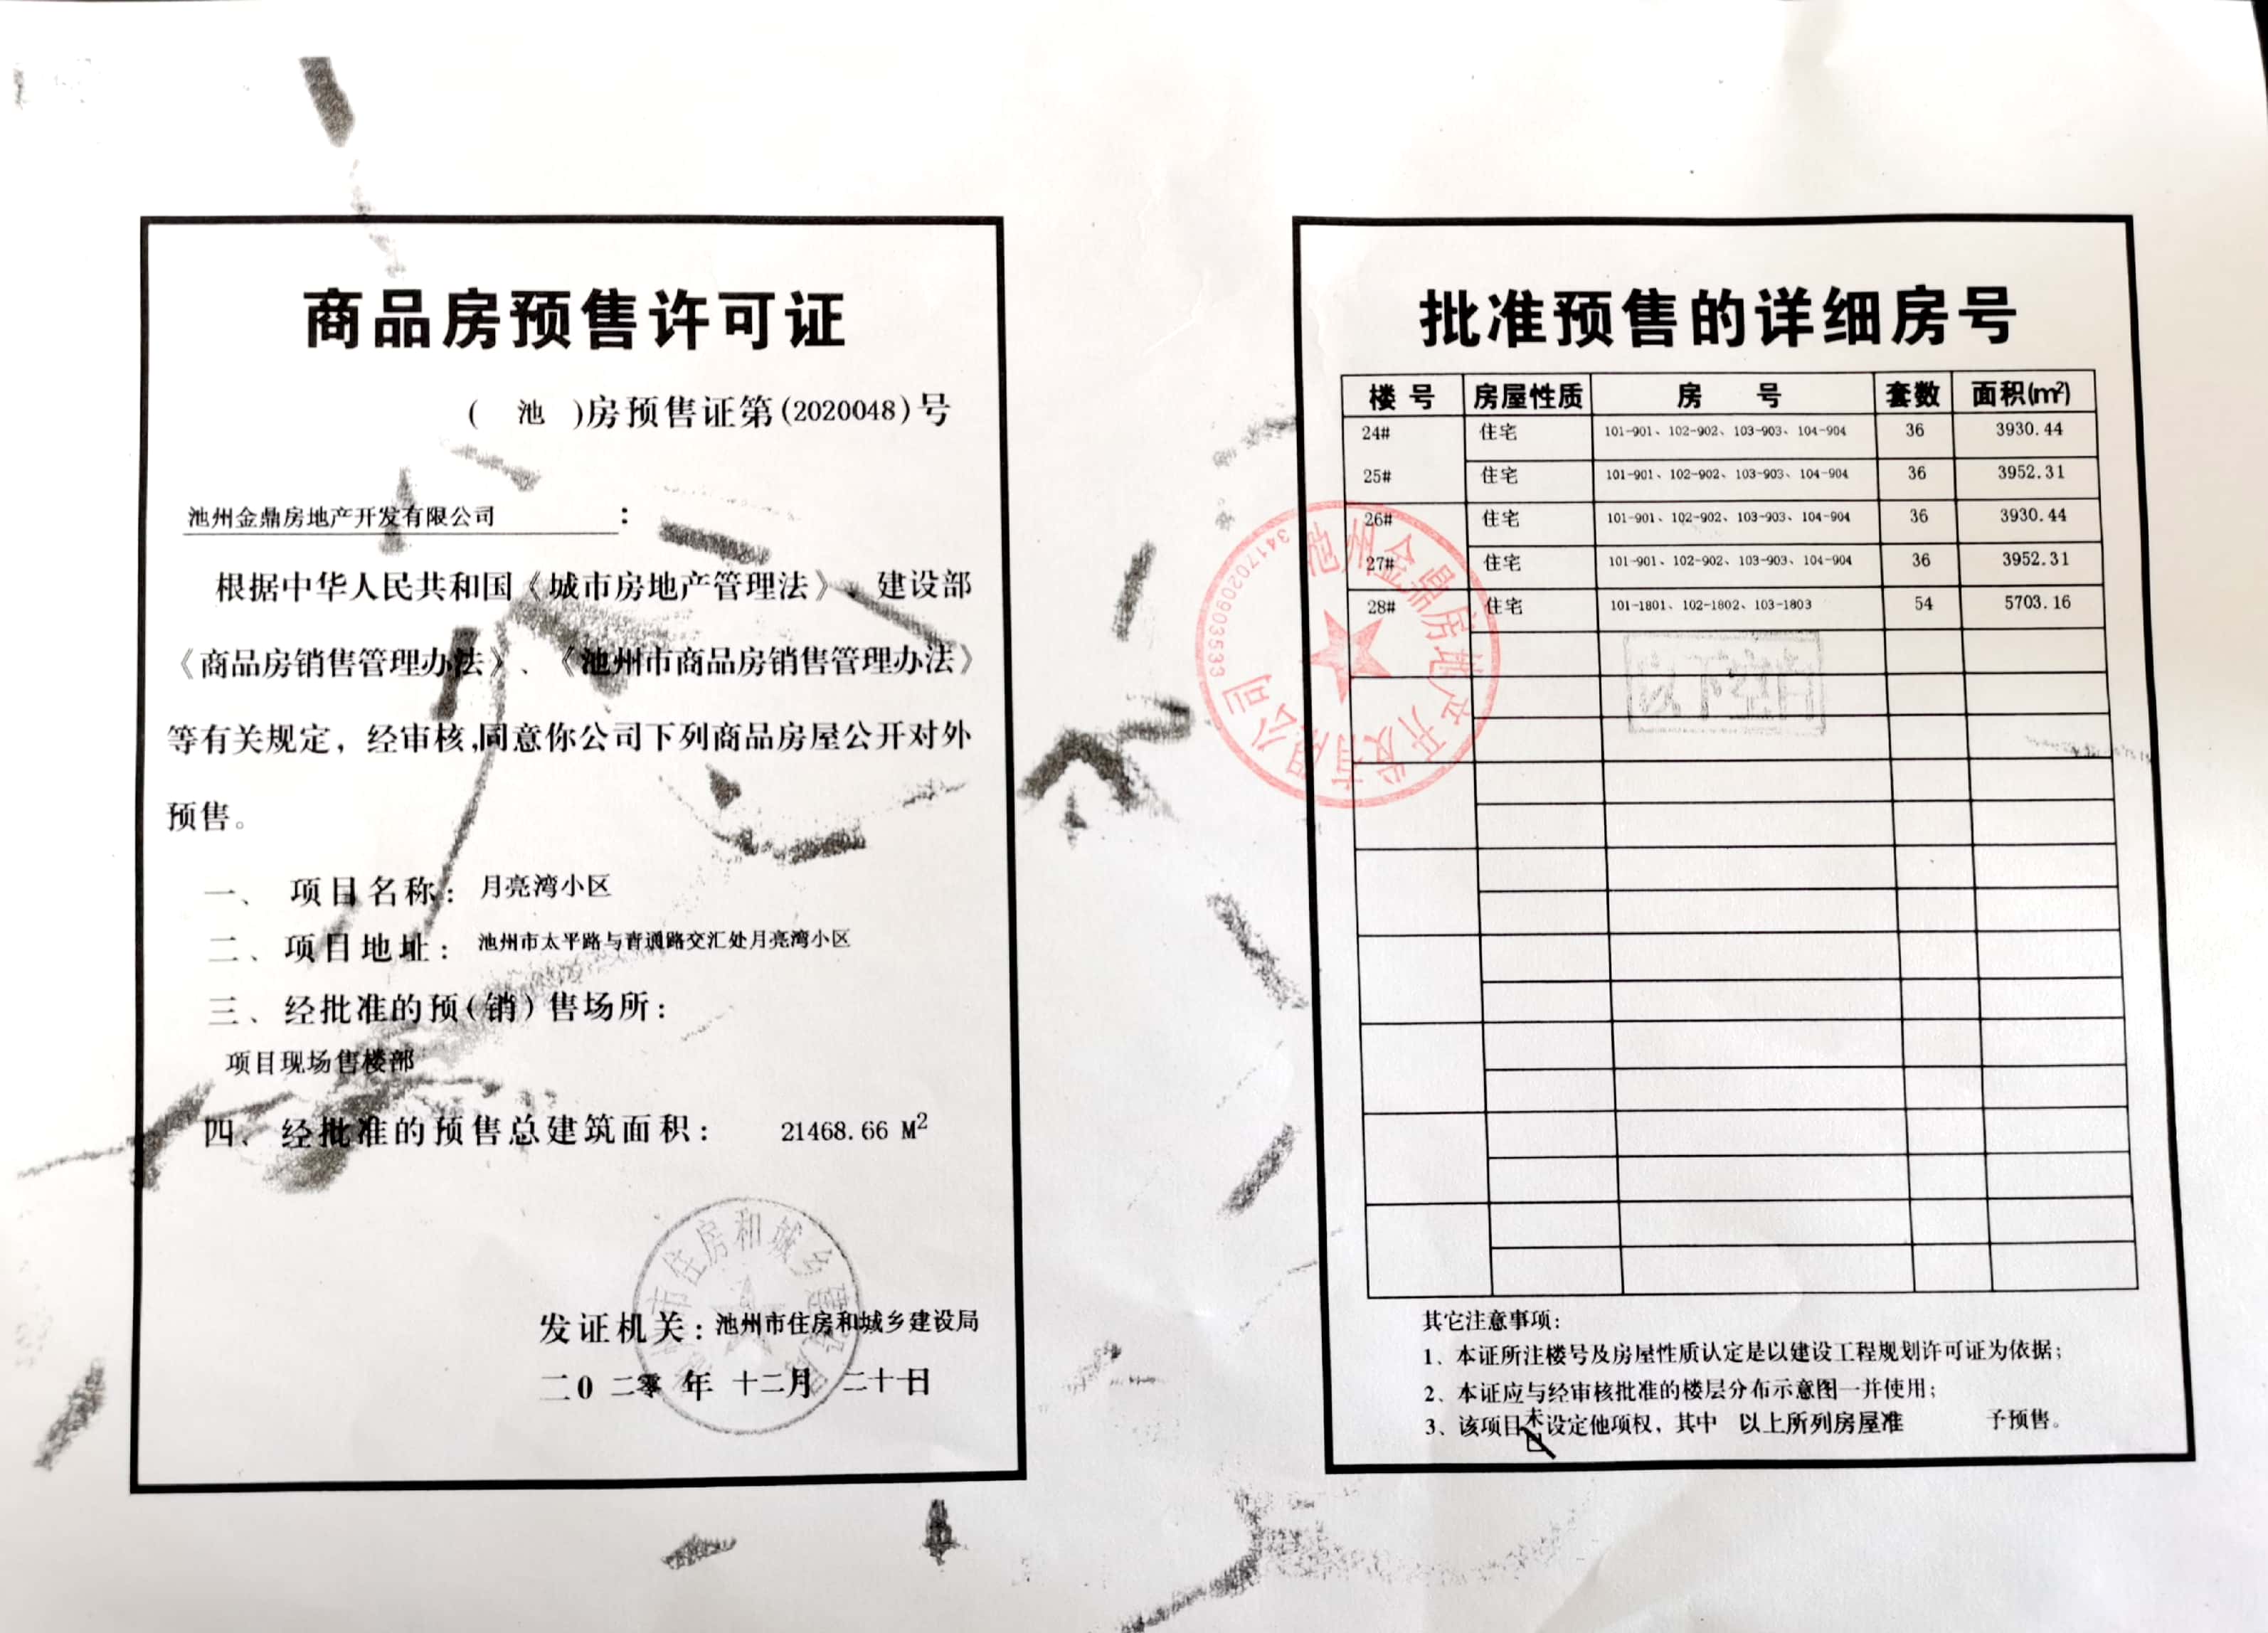 商品房预售许可证
( 池 )房预售证第(2020048)号
池州金鼎房地产开发有限公司 :
根据中华人民共和国《城市房地产管理法》、建设部
《商品房销售管理办法》、《池州市商品房销售管理办法》
等有关规定，经审核,同意你公司下列商品房屋公开对外
预售。
一、 项目名称: 月亮湾小区
二、项目地址: 池州市太平路与青通路交汇处月亮湾小区
三、经批准的预(销)售场所:
项目现场售楼部
四、经批准的预售总建筑面积: 21468.66 M²
市住房和城乡建
发证机关:池州市住房和城乡建设局
二0 二零 年 十二月 二十一日
批准预售的详细房号
楼 号 房屋性质 房 号 套数 面积(m²)
24# 住宅 101-901、102-902、103-903、104-904 36 3930.44
25# 住宅 101-901、102-902、103-903、104-904 36 3952.31
26# 住宅 101-901、102-902、103-903、104-904 36 3930.44
27# 住宅 101-901、102-902、103-903、104-904 36 3952.31
28# 住宅 101-1801、102-1802、103-1803 54 5703.16
以下空白
池州金鼎房地产开发有限公司
3417020903533
其它注意事项:
1、本证所注楼号及房屋性质认定是以建设工程规划许可证为依据;
2、本证应与经审核批准的楼层分布示意图一并使用;
3、该项目未设定他项权，其中 以上所列房屋准 予预售。